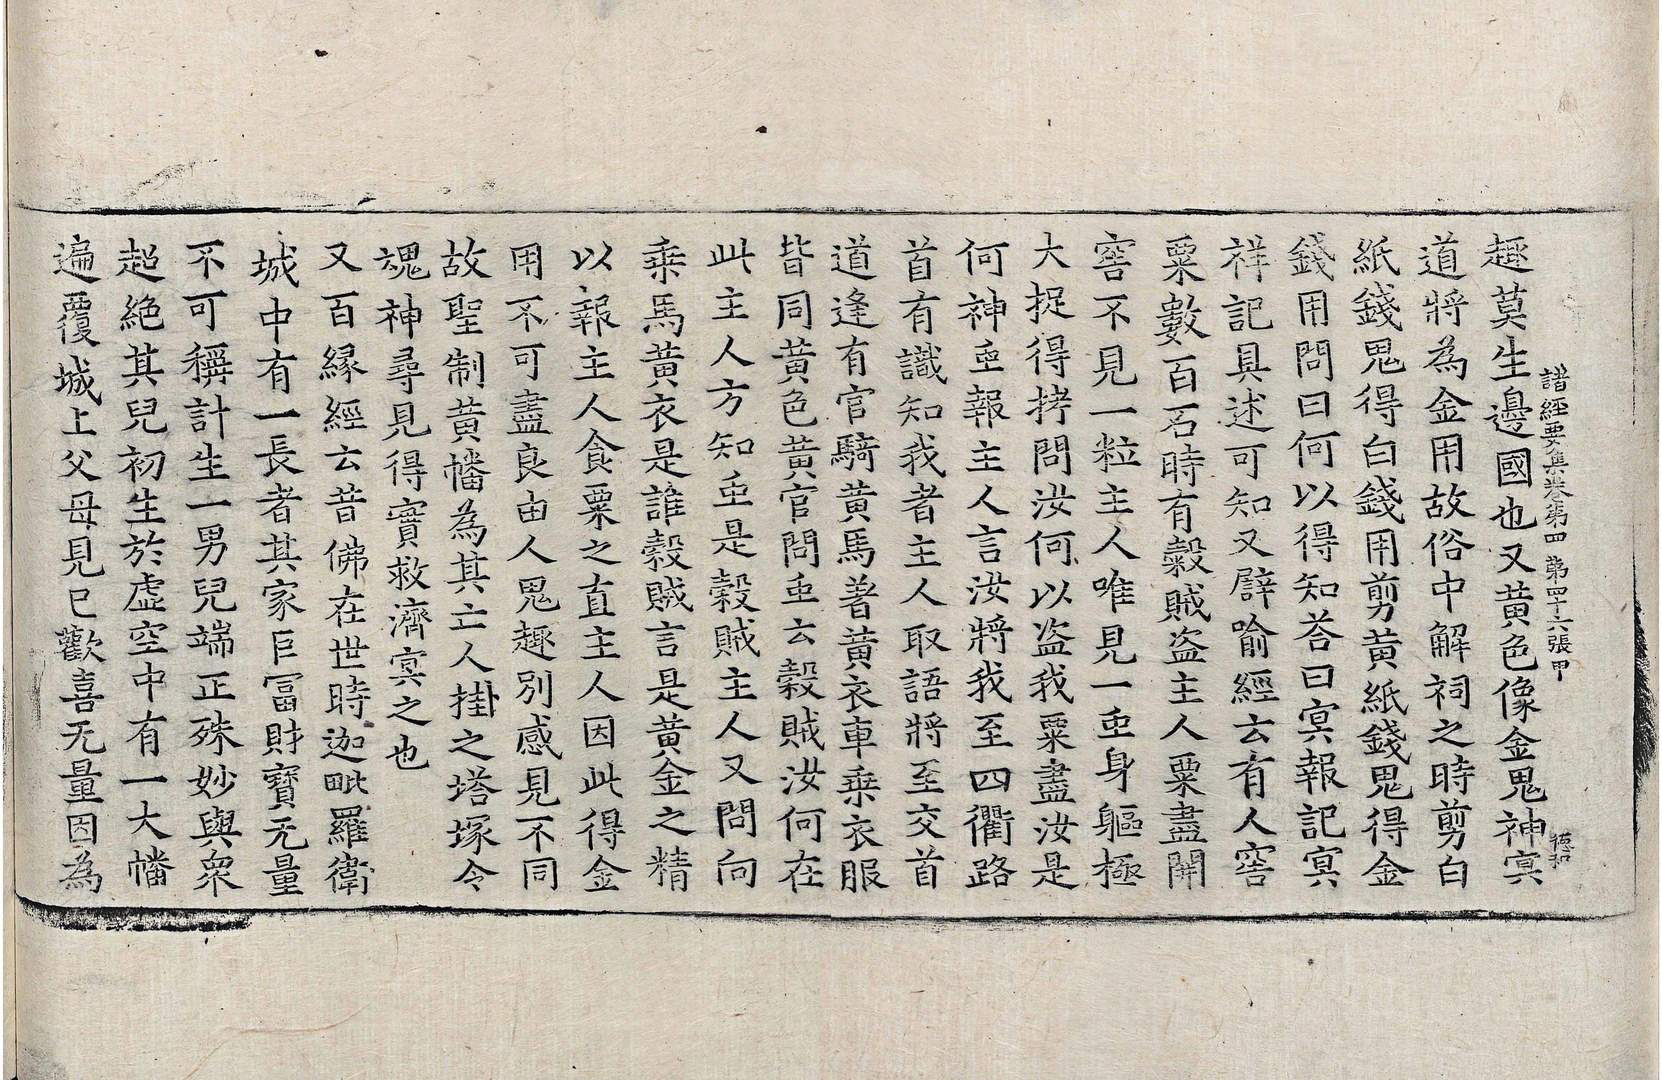 諸經要集卷第四 第四十六張 甲
德和
趣莫生邊國也又黃色像金鬼神㝠
道將為金用故俗中解祠之時剪白
紙錢鬼得白錢用剪黃紙錢鬼得金
錢用問曰何以得知荅曰㝠報記㝠
祥記具述可知又辟喻經云有人窖
粟數百石時有糓賊盗主人粟盡開
窖不見一粒主人唯見一䖝身軀極
大捉得拷問汝何以盗我粟盡汝是
何神䖝報主人言汝將我至四衢路
首有識知我者主人取語將至交首
道逢有官騎黃馬著黃衣車乗衣服
皆同黃色黃官問䖝云糓賊汝何在
此主人方知䖝是糓賊主人又問向
乗馬黃衣是誰糓賊言是黃金之精
以報主人食粟之直主人因此得金
用不可盡良由人鬼趣別感見不同
故聖制黃幡為其亡人掛之塔塚令
魂神尋見得寶救濟㝠之也
又百緣經云昔佛在世時迦毗羅衞
城中有一長者其家巨冨財寶无量
不可稱計生一男兒端正殊妙與衆
超絶其兒初生於虛空中有一大幡
遍覆城上父母見已歡喜无量因為